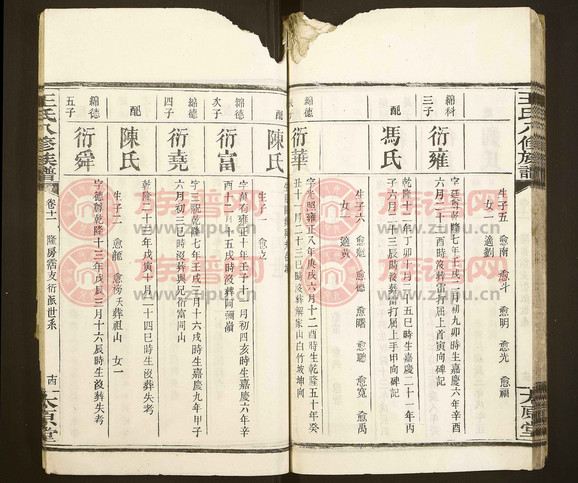 王氏八修族譜
太原堂
錦科
三子
衍雍
生子五
愈南
愈斗
愈明
愈光
愈禎
女一
適劉
六月二十二酉時沒葬雷打屋上首寅向碑記
配
馮氏
乾隆十一年丁卯十月二十五巳時生嘉慶二十一年丙
子六月二十三辰時沒葬雷打屋上手甲向碑記
錦德
衍華
生子六
愈德
愈曙
愈聰
愈寬
愈禹
女一
適黃
字光照雍正八年庚戌六月十二酉時生乾隆五十年癸
丑十一月二十三巳時沒葬解家山白竹坡坤向
配
陳氏
生子一
愈立
錦德
次子
衍富
雍正十年壬子十一月初四亥時生嘉慶六年辛
錦德
四子
衍堯
字三祝乾隆七年壬戌三月十六戌時生嘉慶九年甲子
六月初三巳時沒葬與兄衍富同山
配
陳氏
生子二
愈龍
愈榜夭葬祖山
女一
乾隆二十三年戊寅十月二十四巳時生沒葬失考
錦德
五子
衍舜
字德尊乾隆十三年戊辰三月十六辰時生沒葬失考
王氏八修族譜
卷十二
隆房霑支衍派世系
太原堂
族譜网
www.zupu.cn